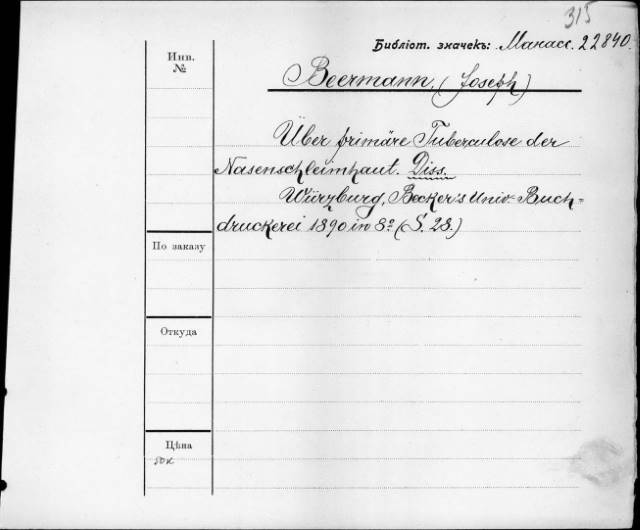 315
Библіот. значекъ: Манасс. 22840.
Инв.
№
Beermann, (Joseph)
Über primäre Tuberculose der
Nasenschleimhaut. Diss.
Würzburg, Becker's Univ.-Buch-
druckerei 1890 in 8º (S. 28.)
По заказу
Откуда
Цѣна
50к